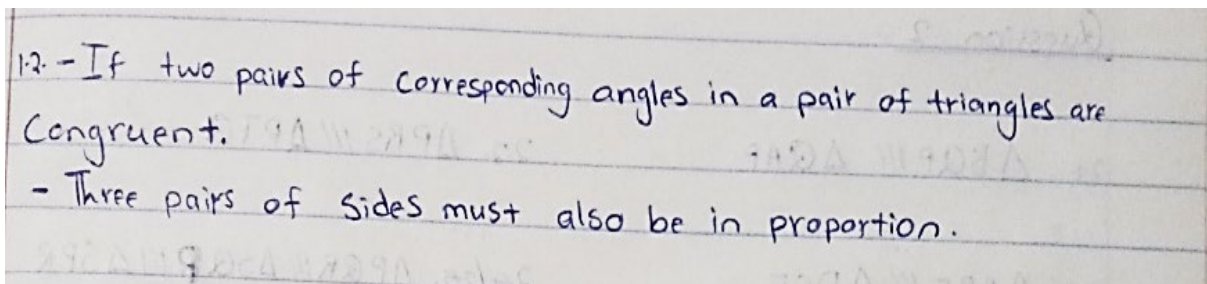 1.2. - If two pairs of corresponding angles in a pair of triangles are
Congruent.
- Three pairs of sides must also be in proportion.